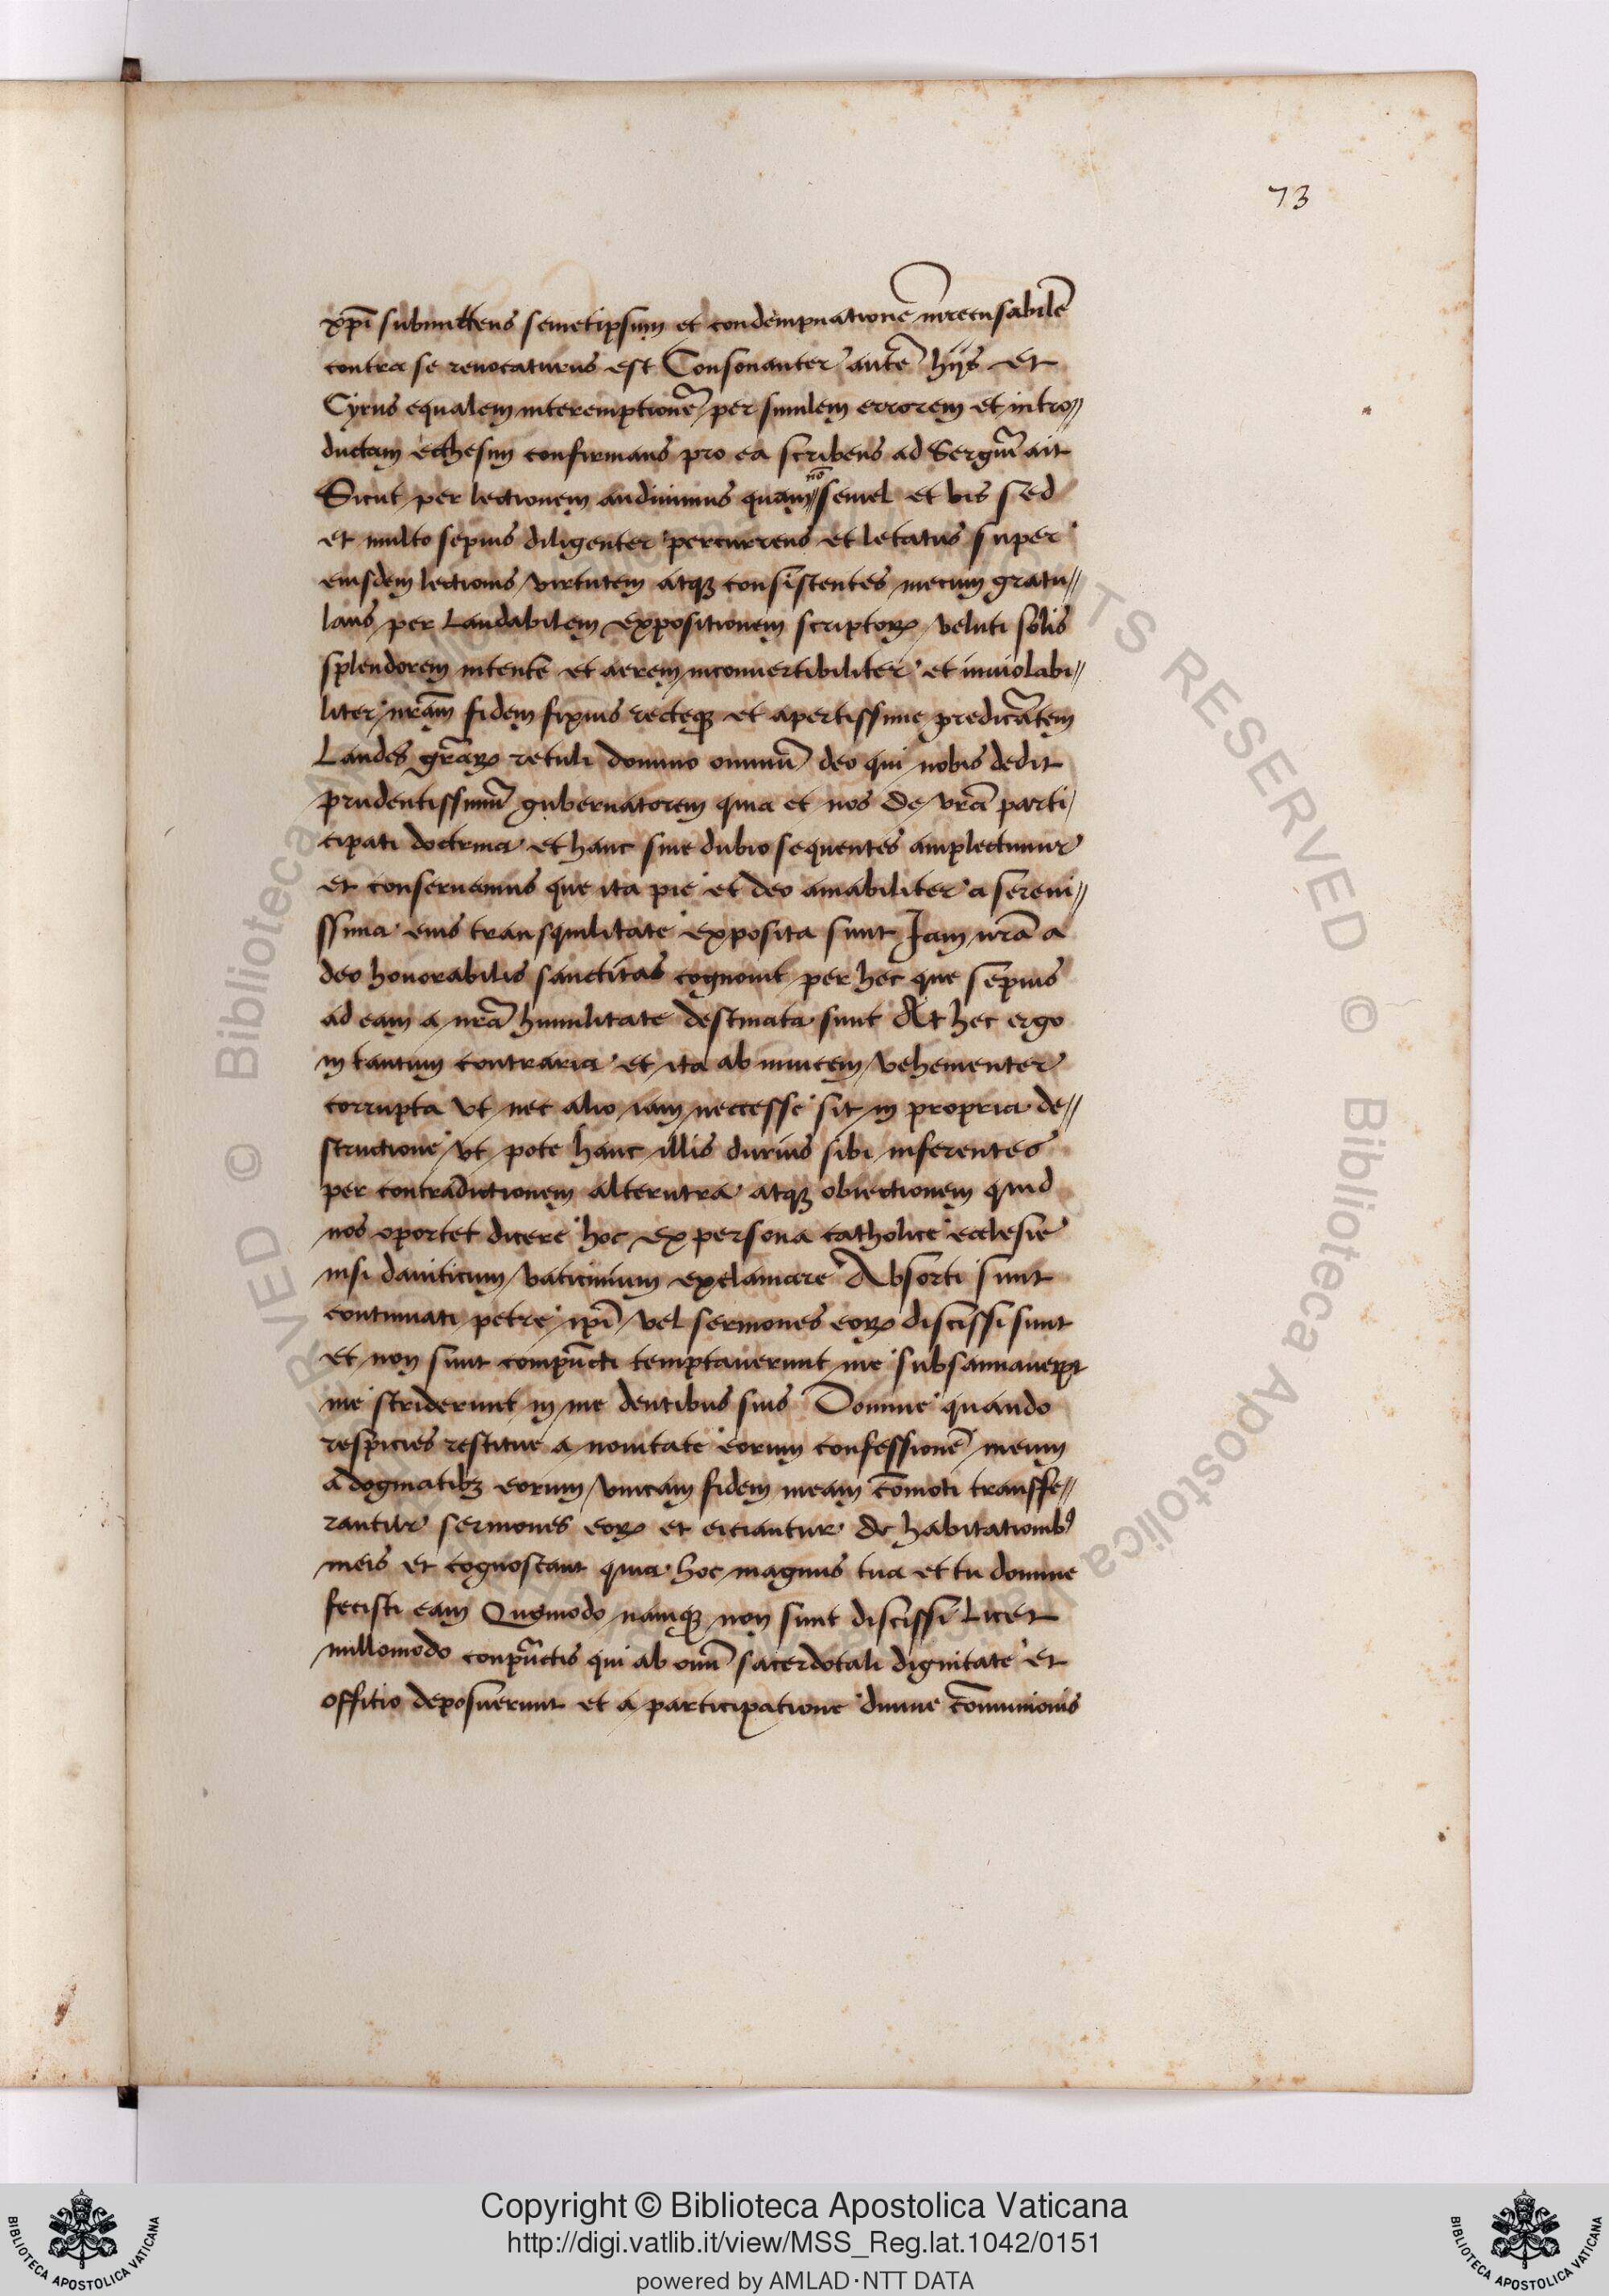 73
xp̄i submittens semetipsum et condempnationē inrecusabilē
contra se reuocaturus est Consonanter autē hijs et
Cyrus equalem interemptionē per similem errorem et intro//
ductam ecthesim confirmans pro ea scribens ad Sergiū ait
Sicut per lectionem audiuimus quam nō semel et bis sed
et multo sepius diligenter percurrens et letatus super
eiusdem lectionis virtutem atqꝫ consistentes mecum gratu//
lans per laudabilem expositionem scriptoꝝ veluti solis
splendorem intente et aerem inconuertibiliter et inuiolabi//
liter nr̄am fidem fixius recteqꝫ et apertissime predicātem
Laudes gr̄aꝝ retuli domino omniū deo qui nobis dedit
prudentissimū gubernatorem quia et nos de vr̄a parti/
cipati doctrina et hanc sine dubio sequentes amplectimur
et conseruamus que ita pie et deo amabiliter a sereni//
ssima eius transquilitate exposita sunt Iam nr̄a a
deo honorabilis sanctitas cognouit per hec que sepius
ad eam a nr̄a humilitate destinata sunt At hec ergo
in tantum contraria et ita ab inuicem vehementer
corrupta vt nec alio iam neccesse sit in propria de//
structione vt pote hanc illis durius sibi inferentes
per contradictionem alterutra atqꝫ obiectionem quid
nos oportet dicere hoc ex persona catholice ecclesie
nisi dauiticum vaticinium exclamare Absorti sunt
continuati petre ip̄i vel sermones eoꝝ discissi sunt
et non sunt compūcti temptauerunt me subsannauerꝝt
me striderunt in me dentibus suis Domine quando
respicies restitue a nouitate eorum confessionē meum
a dogmatibꝫ eorum vnicam fidem meam cōmoti transffe//
rantur sermones eoꝝ et eiciantur de habitationibꝰ
meis et cognoscant quia hoc magnus tua et tu domine
fecisti eam Quomodo namqꝫ non sunt discissi licet
nullomodo conpūctis qui ab omī sacerdotali dignitate et
offitio deposuerunt et a participatione diuine cōmunionis
Copyright © Biblioteca Apostolica Vaticana
http://digi.vatlib.it/view/MSS_Reg.lat.1042/0151
powered by AMLAD·NTT DATA
BIBLIOTECA APOSTOLICA VATICANA
BIBLIOTECA APOSTOLICA VATICANA